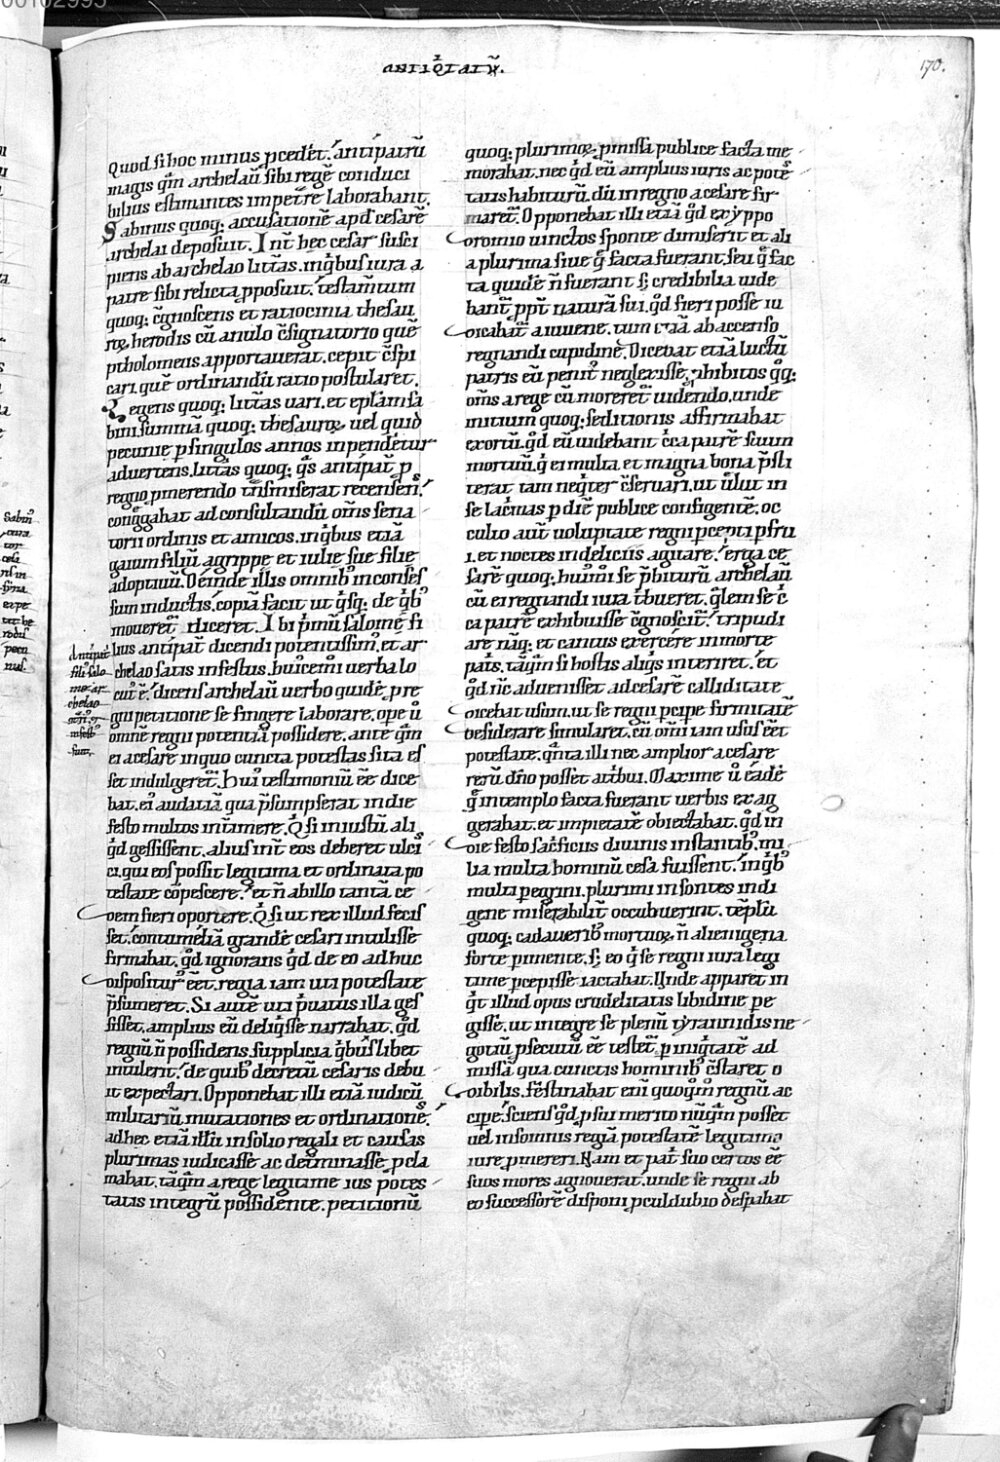 00102995
ANTIQ̾ITATU᷈.
170.
Quod si hoc minus ꝑcederet. antipatrū
magis q̄m archelaū sibi regē conduci
bilius estimantes impet̄re laborabant.
Sabinus quoq; accusationē apd̄ cesarē
archelai deposuit. Int̄ hec cesar susci
piens ab archelao litt̄as. inq̾bus iura a
patre sibi relicta ꝓposuit. testam̄tum
quoq; c̄gnoscens et ratiocinia thesau
roꝝ herodis cū anulo c̄signatorio quē
ptholomeus apportauerat. cepit c̄spi
cari. quē ordinandū ratio postularet.
Legens quoq; litt̄as uari. et ep̄lam sa
bini summā quoq; thesauroꝝ uel quid
pecunię ꝑ singulos annos inpendetur
aduertens. litt̄as quoq; q̾s antipat̄ ꝓ
regno ꝓmerendo t̄nsmiserat recensen̄.
cong̾gabat ad consultandū om̄s sena
torii ordinis et amicos. inq̾bus etiā
gaium filiū agrippę et iulię suę filię
adoptiuū. Deinde illis omnib; in conses
sum inductis. copiā facit ut q̾sq; de q̾b;
mouereт̄ diceret. Ibi p̾mū salomę fi
lius antipat̄ dicendi potentissim; et ar
chelao satis infestus. hui᷒cem̾i uerba lo
cut; ē. dicens archelaū uerbo quidē. pre
gni petitione se fingere laborare. ope ū
omnē regni potentiā possidere. ante q̄m
ei a cesare in quo cuncta potestas sita es
set indulgeret̄. Hui᷒ testimoniū eē dice
bat. ei᷒ audatiā qua p̄sumpserat in die
festo multos int̾imere. Q̾ si iniustū ali
q̾d gessissent. alius int̄ eos deberet ulci
ci. qui eos possit legitima et ordinata po
testate cōpescere. et n̄ ab illo tantā ce
dem fieri oportere. Q̾ si ut rex illud fecis
set. contumeliā grandē cesari intulisse
firmabat. q̾d ignorans q̾d de eo adhuc
dispositur᷒ eēt. regia iam uti potestate
p̄sumeret. Si autē uti p̾uatus illa ges
sisset. amplius eū deliq̾sse narrabat. q̾d
regnū n̄ possidens supplicia q̾b᷒ libet
intulerit. de quib᷒ decretū cesaris debu
it expectari. Opponebat illi etiā iudicū
militariū mutationes et ordinationē.
ad hec etiā illū in solio regali et causas
plurimas iudicasse ac det̄minasse ꝓcla
mabat. tāq̄m a rege legitime ius potes
tatis integrū possidente. petitionū
quoq; plurimoꝝ ꝓmissa publice facta me
morabat. nec q̾d eū amplius iuris ac potē
tatis habiturū. dū in regno a cesare fir
maret̄. Opponebat illi etiā q̾d ex yppo
dromio uinctos sponte dimiserit et ali
a plurima siue q̾ facta fuerant. seu q̾ fac
ta quidē n̄ fuerant s; credibilia uide
bant̄ ꝓpt̄ naturā sui. q̾d fieri posse iu
dicabat̄ a iuuene. tum et̄iā ab accenso
regnandi cupidine. Dicebat etiā luctū
patris eū penit᷒ neglexisse. ꝓhibitos q̾q;
om̄s a rege cū moreret̄ uidendo. unde
initium quoq; seditionis affirmabat
exortū. q̾d eū uidebant c̾ca patrē suum
mortuū. q̾ ei multa et magna bona p̄sti
terat tam neq̾ter c̄seruari. ut uelut in
se lac̾mas ꝑ diē publice configentē. oc
culto aut̄ uoluptate regni ꝑcepti ꝑfru
i. et noctes in deliciis agitare. erga ce
sarē quoq; hui᷒m̾i se p̄biturū archelaū
cū ei regnandi iura t̾bueret. q̄lem se c̾
ca patrē exhibuisse c̄gnoscit̄. tripudi
are nāq; et cantus exercere in morte
pat̾s. tāq̄m si hostis aliq̾s interiret. et
q̾d n̄c aduenisset ad cesarē calliditate
dicebat usum. ut se regni ꝑcipe firmitatē
desiderare simularet. cū om̄i iam usus eēt
potestate. q̾nta illi nec amplior a cesare
rerū dn̄o posset at̾bui. Maxime ū eadē
q̾ in templo facta fuerant uerbis exag
gerabat. et impietatē obiectabat. q̾d in
die festo sac̾ficiis diuinis instantib᷒. mi
lia multa hominū cesa fuissent. in q̾b᷒
multi pegrini. plurimi insontes indi
gene miserabilit̄ occubuerint. templū
quoq; cadauerib᷒ mortuoꝝ n̄ alienigena
forte ꝑimente. s; eo q̾ se regni iura legi
time ꝑcepisse iactabat. Unde apparet in
q̾t illud opus crudelitatis libidine pe
gisse. ut integre se plenū tyrannidis ne
gotiū ꝑsecutū eē testet̄. ꝑ iniq̾tatē ad
missā qua cunctis hominib᷒ c̄staret o
dibilis. festinabat eni quoq̾m̾ regnū ac
cipe. sciens q̾d ꝓ sui merito nūq̄m posset
uel in somnis regiā potestatē legitimo
iure ꝓmereri. Nam et pat̾ suo certos eē
suos mores agnouerat. unde se regni ab
eo successorē disponi ꝓculdubio despabat
Antipat̄
fili᷒ salo
me ar
chelao
infest᷒
fuit.